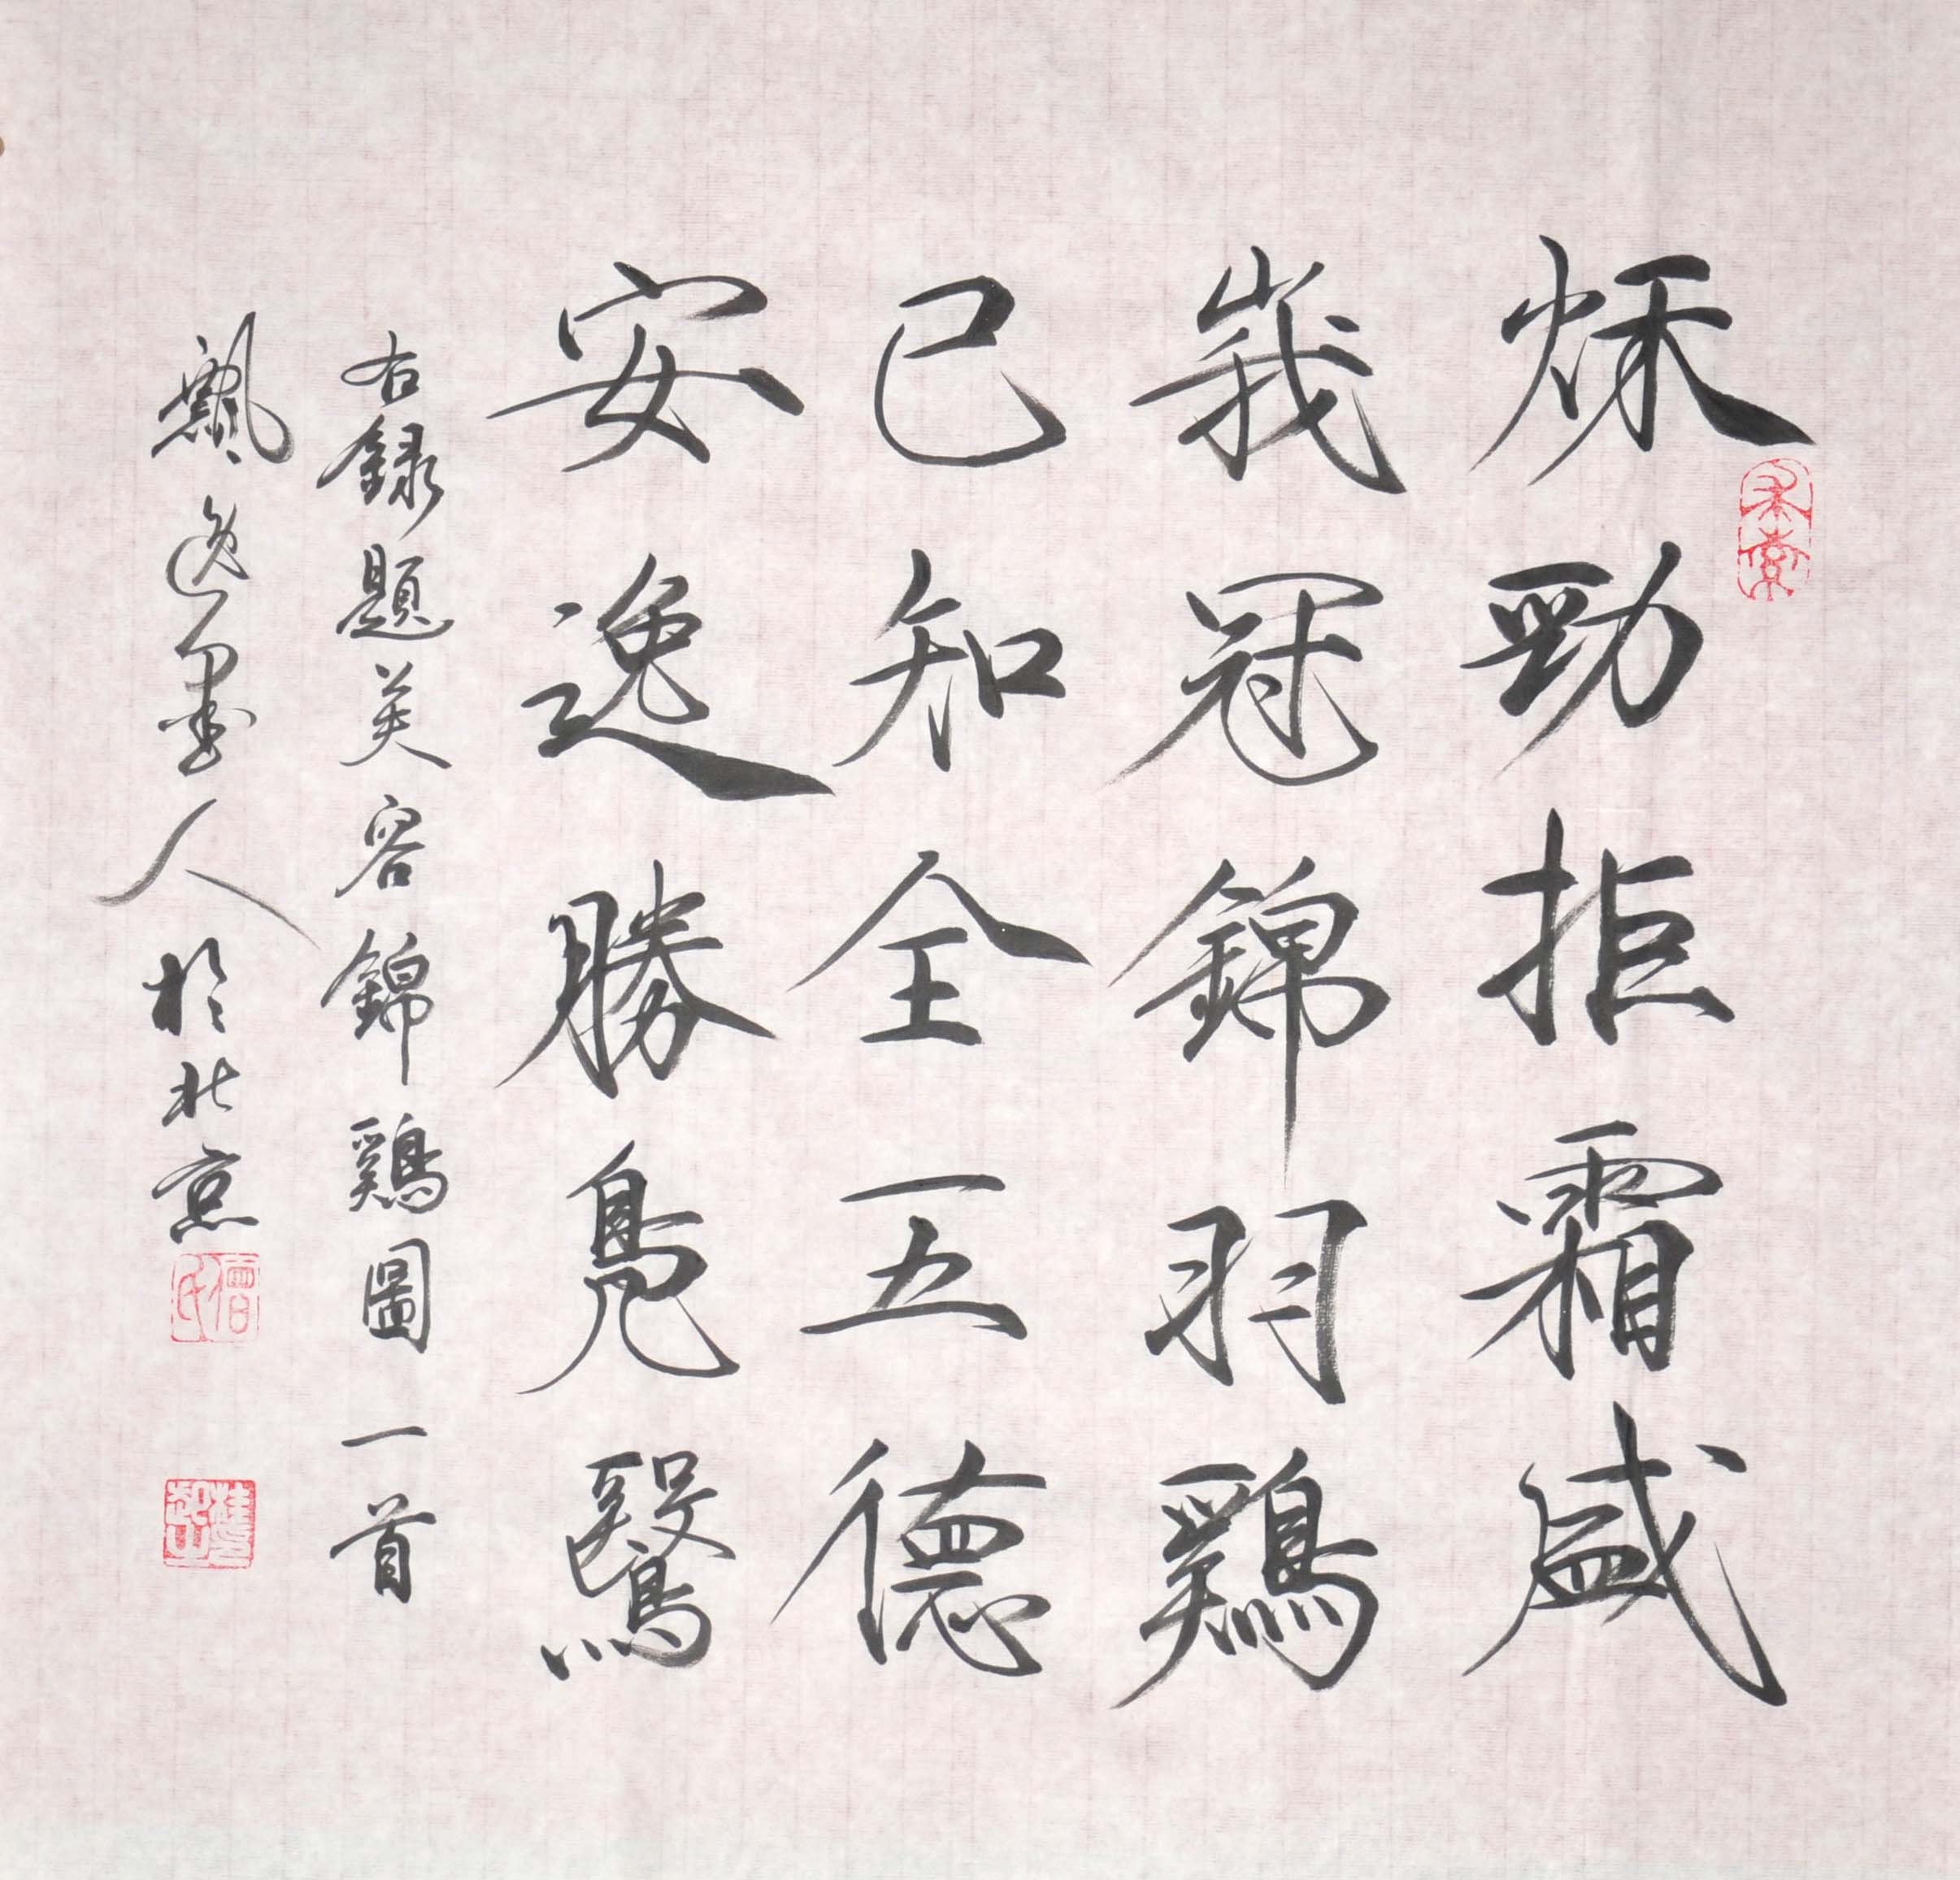 秌勁拒霜盛
峩冠錦羽鷄
已知全五德
安逸勝鳧鷖
右録題芙容錦鷄圖一首
飄逸墨人於北京